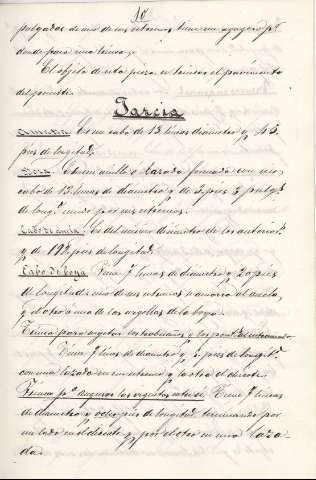 10
pulgadas de uno de sus extremos tiene un agugero pr.
donde pasa una trinca.
El objeto de esta pieza, es trincar el pavimento
del puente.
Jarcia
Amarra. Es un cabo de 13 lineas diametro y 45
pies de longitud.
Es un anillo o lazada formada con un
cabo de 12 lineas de diametro y de 3 pies 3 pulgs.
de longd. unido por sus extremos.
Cabo de ancla. Es del mismo diametro de los anteriors.
y de 192 pies de longitud.
Cabo de boya. Tiene 7 lineas de diametro y 20 pies
de longitud: uno de sus extremos se amarra al ancla,
y el otro a una de las argollas de la boya.
Trinca para sugetar los
Tiene 7 lineas de diametro y pies de longitd.
con una lazada en un extremo y la otra el
Trinca pa. asegurar las viguetas Tiene 7 lineas
de diametro y ocho pies de longitud terminando por
un lado en y por el otro en una laza-
da.